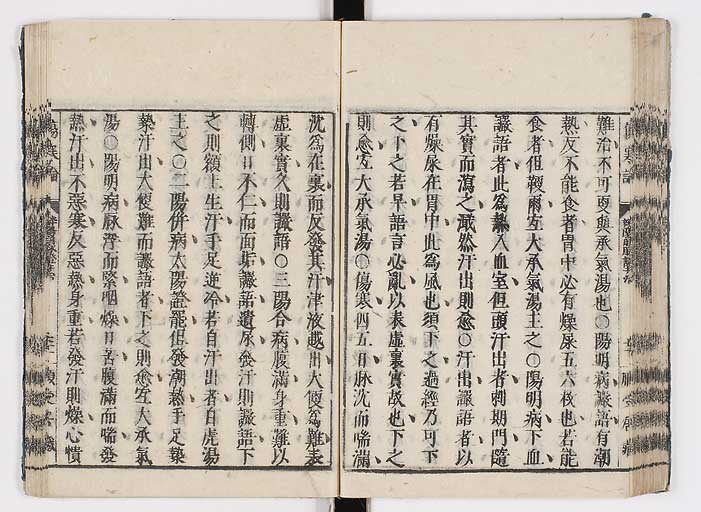 難治不可更與承氣湯也○陽明病讝語有潮
熱反不能食者胃中必有燥屎五六枚也若能
食者但鞕爾宜大承氣湯主之○陽明病下血
讝語者此爲熱入血室但頭汗出者刺期門隨
其實而瀉之濈然汗出則愈○汗出讝語者以
有燥屎在胃中此爲風也須下之過經乃可下
之下之若早語言必亂以表虛裏實故也下之
則愈宜大承氣湯○傷寒四五日脉沈而喘滿
沈爲在裏而反發其汗津液越出大便爲難表
虛裏實久則讝語○三陽合病腹滿身重難以
轉側口不仁而面垢讝語遺尿發汗則讝語下
之則額上生汗手足逆冷若自汗出者白虎湯
主之○二陽併病太陽證罷但發潮熱手足漐
漐汗出大便難而讝語者下之則愈宜大承氣
湯○陽明病脉浮而緊咽燥口苦腹滿而喘發
熱汗出不惡寒反惡熱身重若發汗則燥心憒